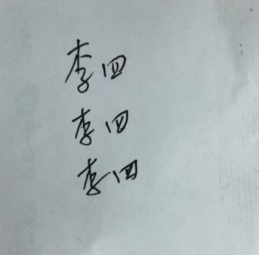 李四
李四
李四